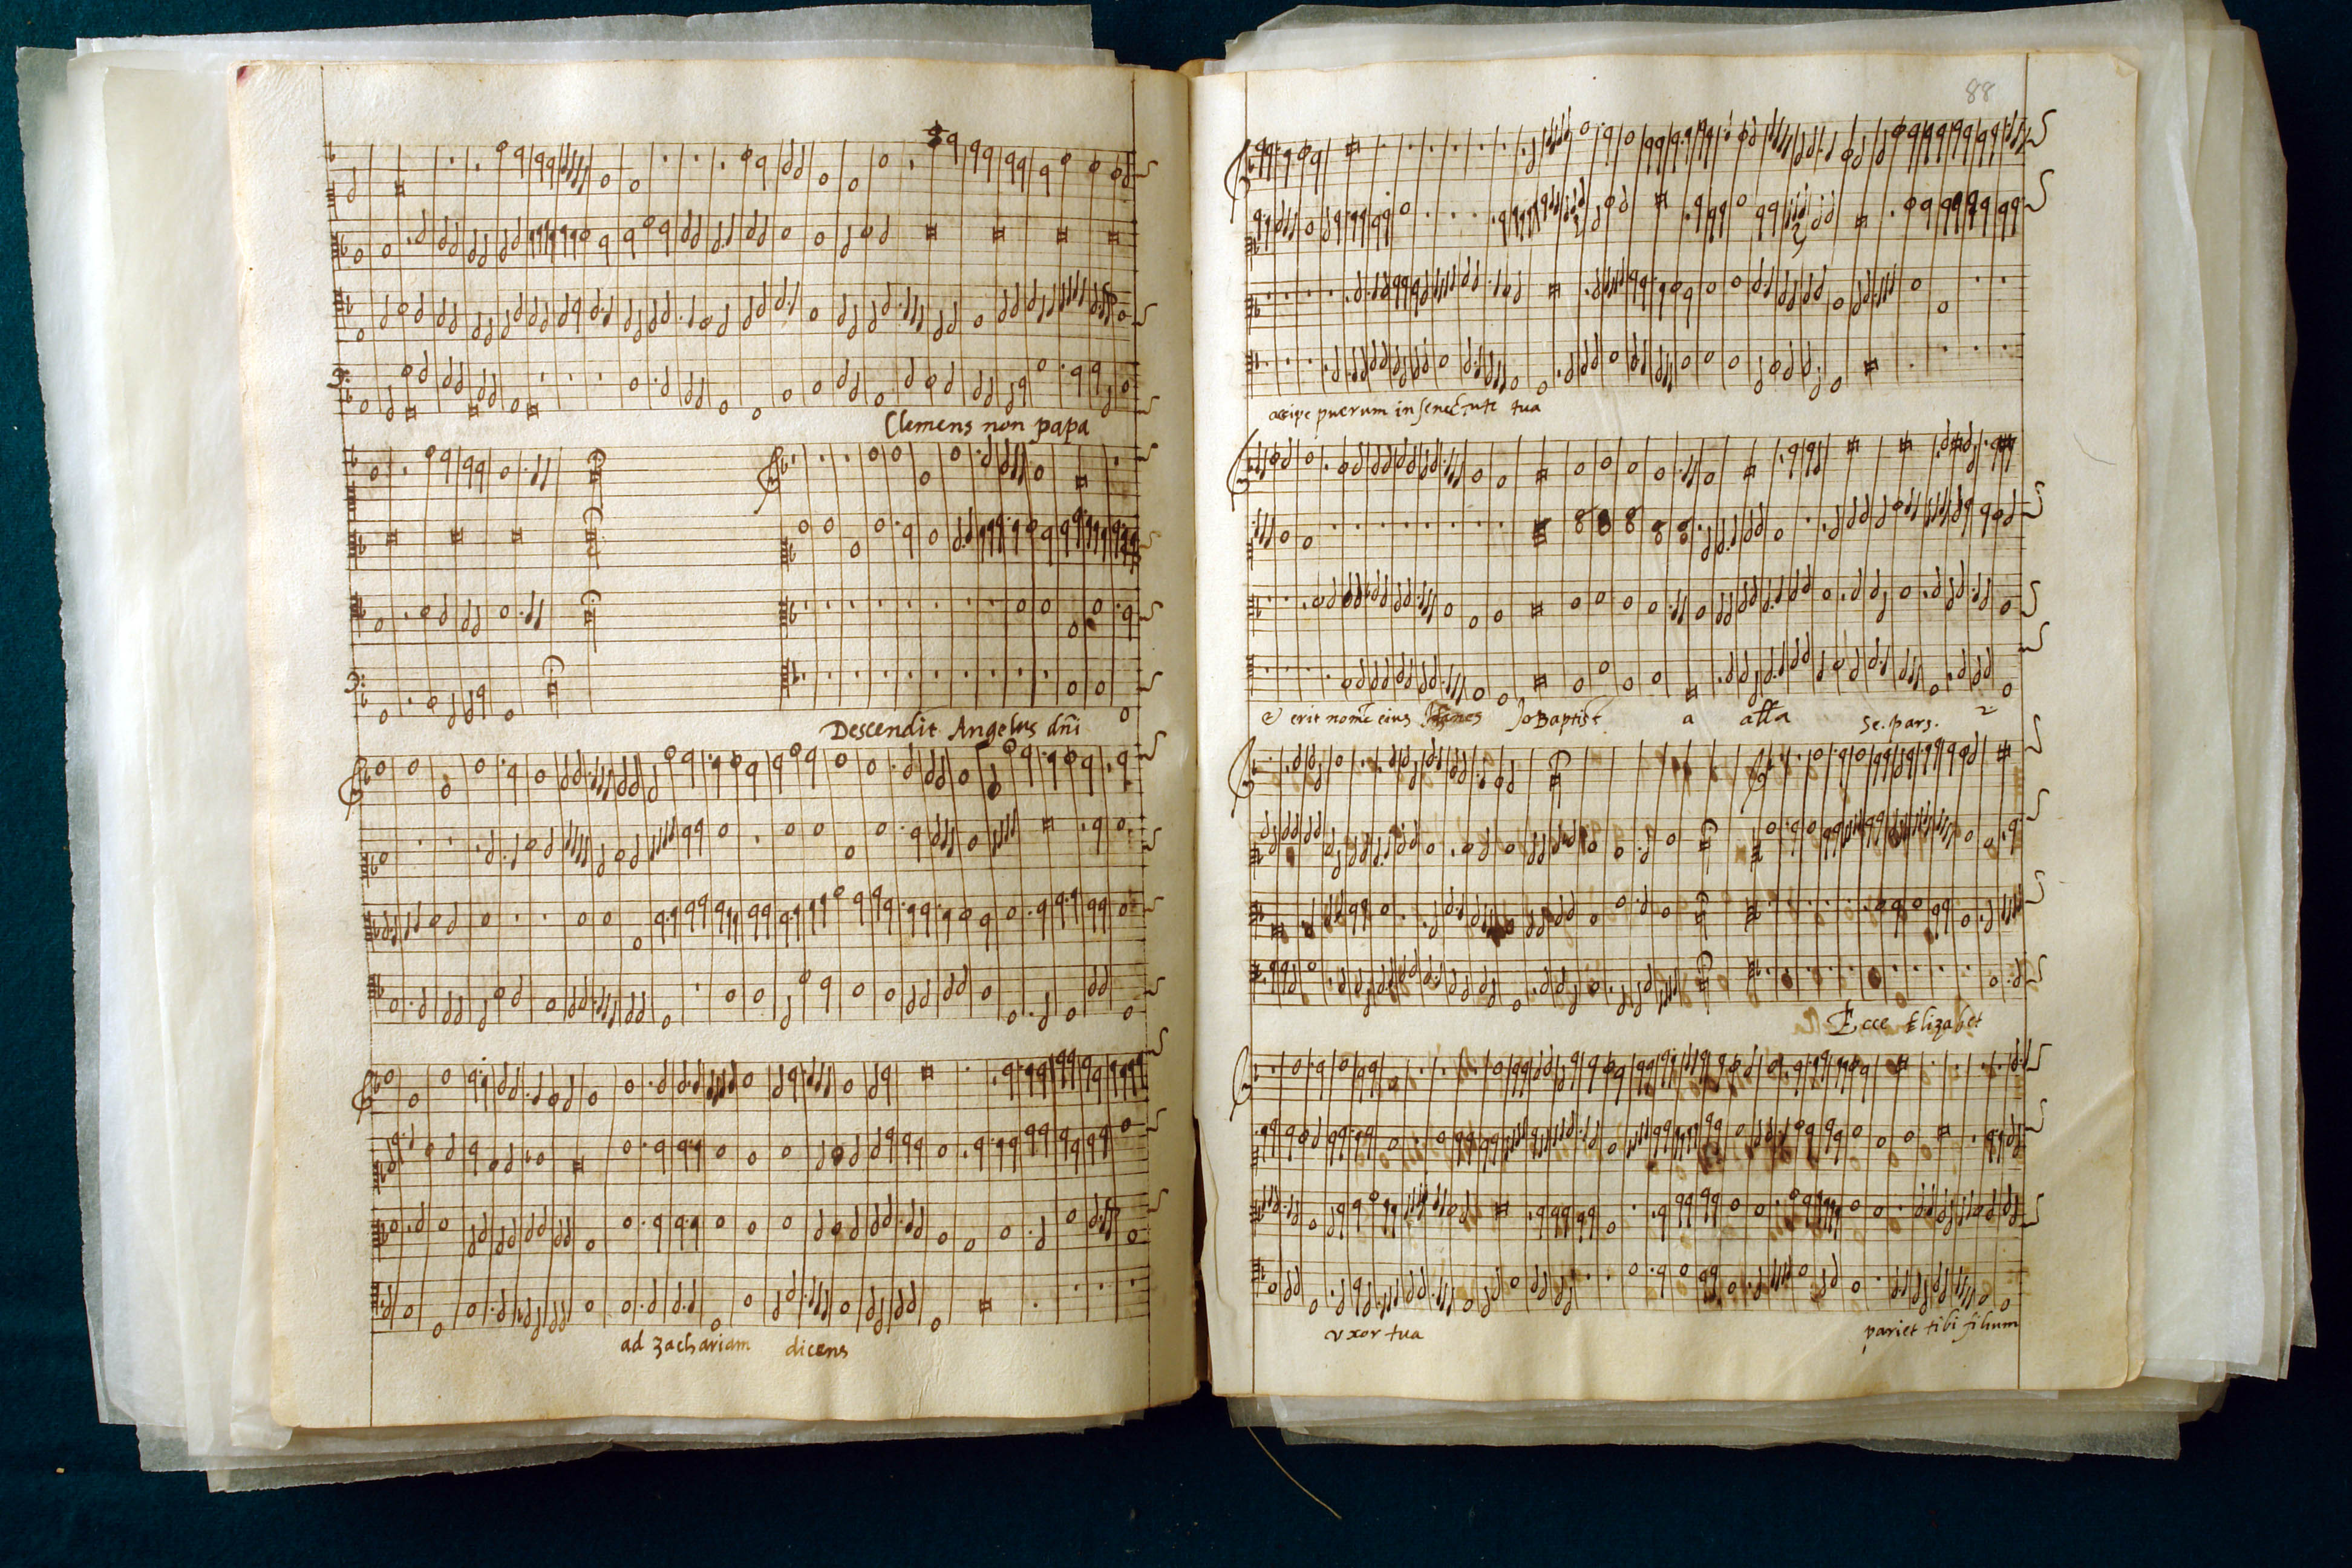 Clemens non papa
Descendit Angelus dñi
ad zachariam dicens
88
accipe puerum in senectute tua
erit nome eius Jo Baptist a alla Se. pars. 2
Ecce Elizabet
vxor tua pariet tibi filium